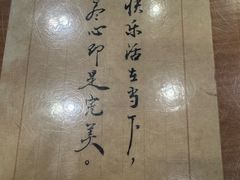 快乐活在当下，
尽心即是完美。